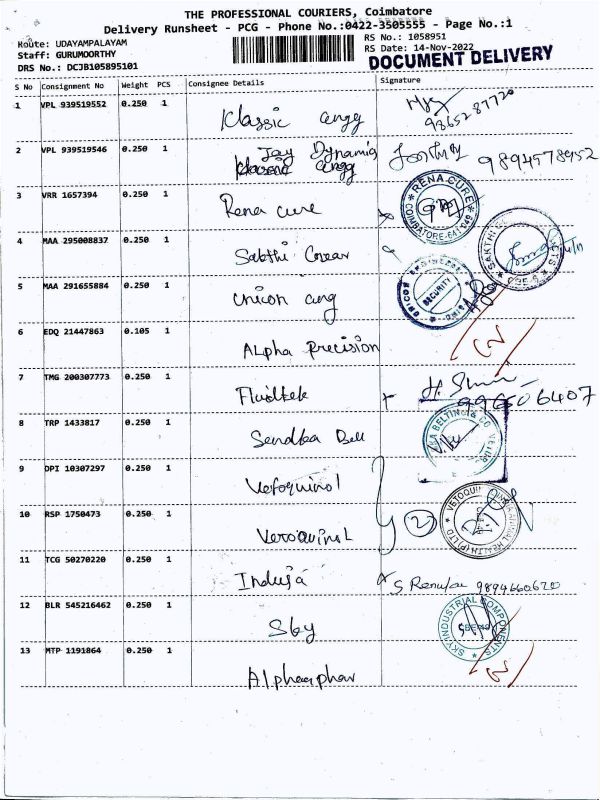 THE PROFESSIONAL COURIERS, Coimbatore
Delivery Runsheet - PCG - Phone No.:0422-3505555 - Page No.:1
Route: UDAYAMPALAYAM
RS No.: 1058951
Staff: GURUMOORTHY
RS Date: 14-Nov-2022
DRS No.: DCJB105895101
DOCUMENT DELIVERY
S No Consignment No Weight PCS Consignee Details Signature
1 VPL 939519552 0.250 1 Klassic engg 9865287720
2 VPL 939519546 0.250 1 Jay Dynamic 9894578952
3 VRR 1657394 0.250 1 Rena cure
RENA CURE COIMBATORE-641 049
4 MAA 295008837 0.250 1 Sakthi Gear
SAKTHI
CBE-6
5 MAA 291655884 0.250 1 Union eng
SECURITY
6 EDQ 21447863 0.105 1 Alpha Precision
7 TMG 200307773 0.250 1 Fluidtek 996606407
8 TRP 1433817 0.250 1 Sendka Bell
BELTING & CO
9 OPI 10307297 0.250 1 Vetoquinol
10 RSP 1750473 0.250 1 Vetoquinol 2
VETOQUINOL INDIA ANIMAL HEALTH (P) LTD
11 TCG 50270220 0.250 1 Induja S. Renuka 9894660620
12 BLR 545216462 0.250 1 Sky
SKY INDUSTRIAL COMPONENTS
13 MTP 1191864 0.250 1